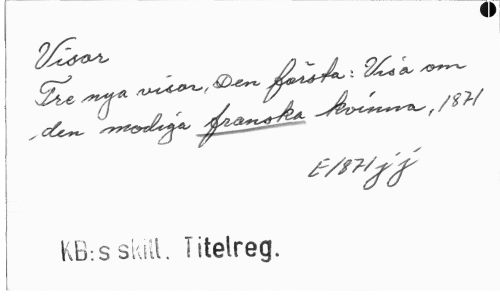 Visor
Tre nya visor, Den första: Visa om
den modiga franska kvinna, 1871
E 1871 jj
KB:s skill. Titelreg.